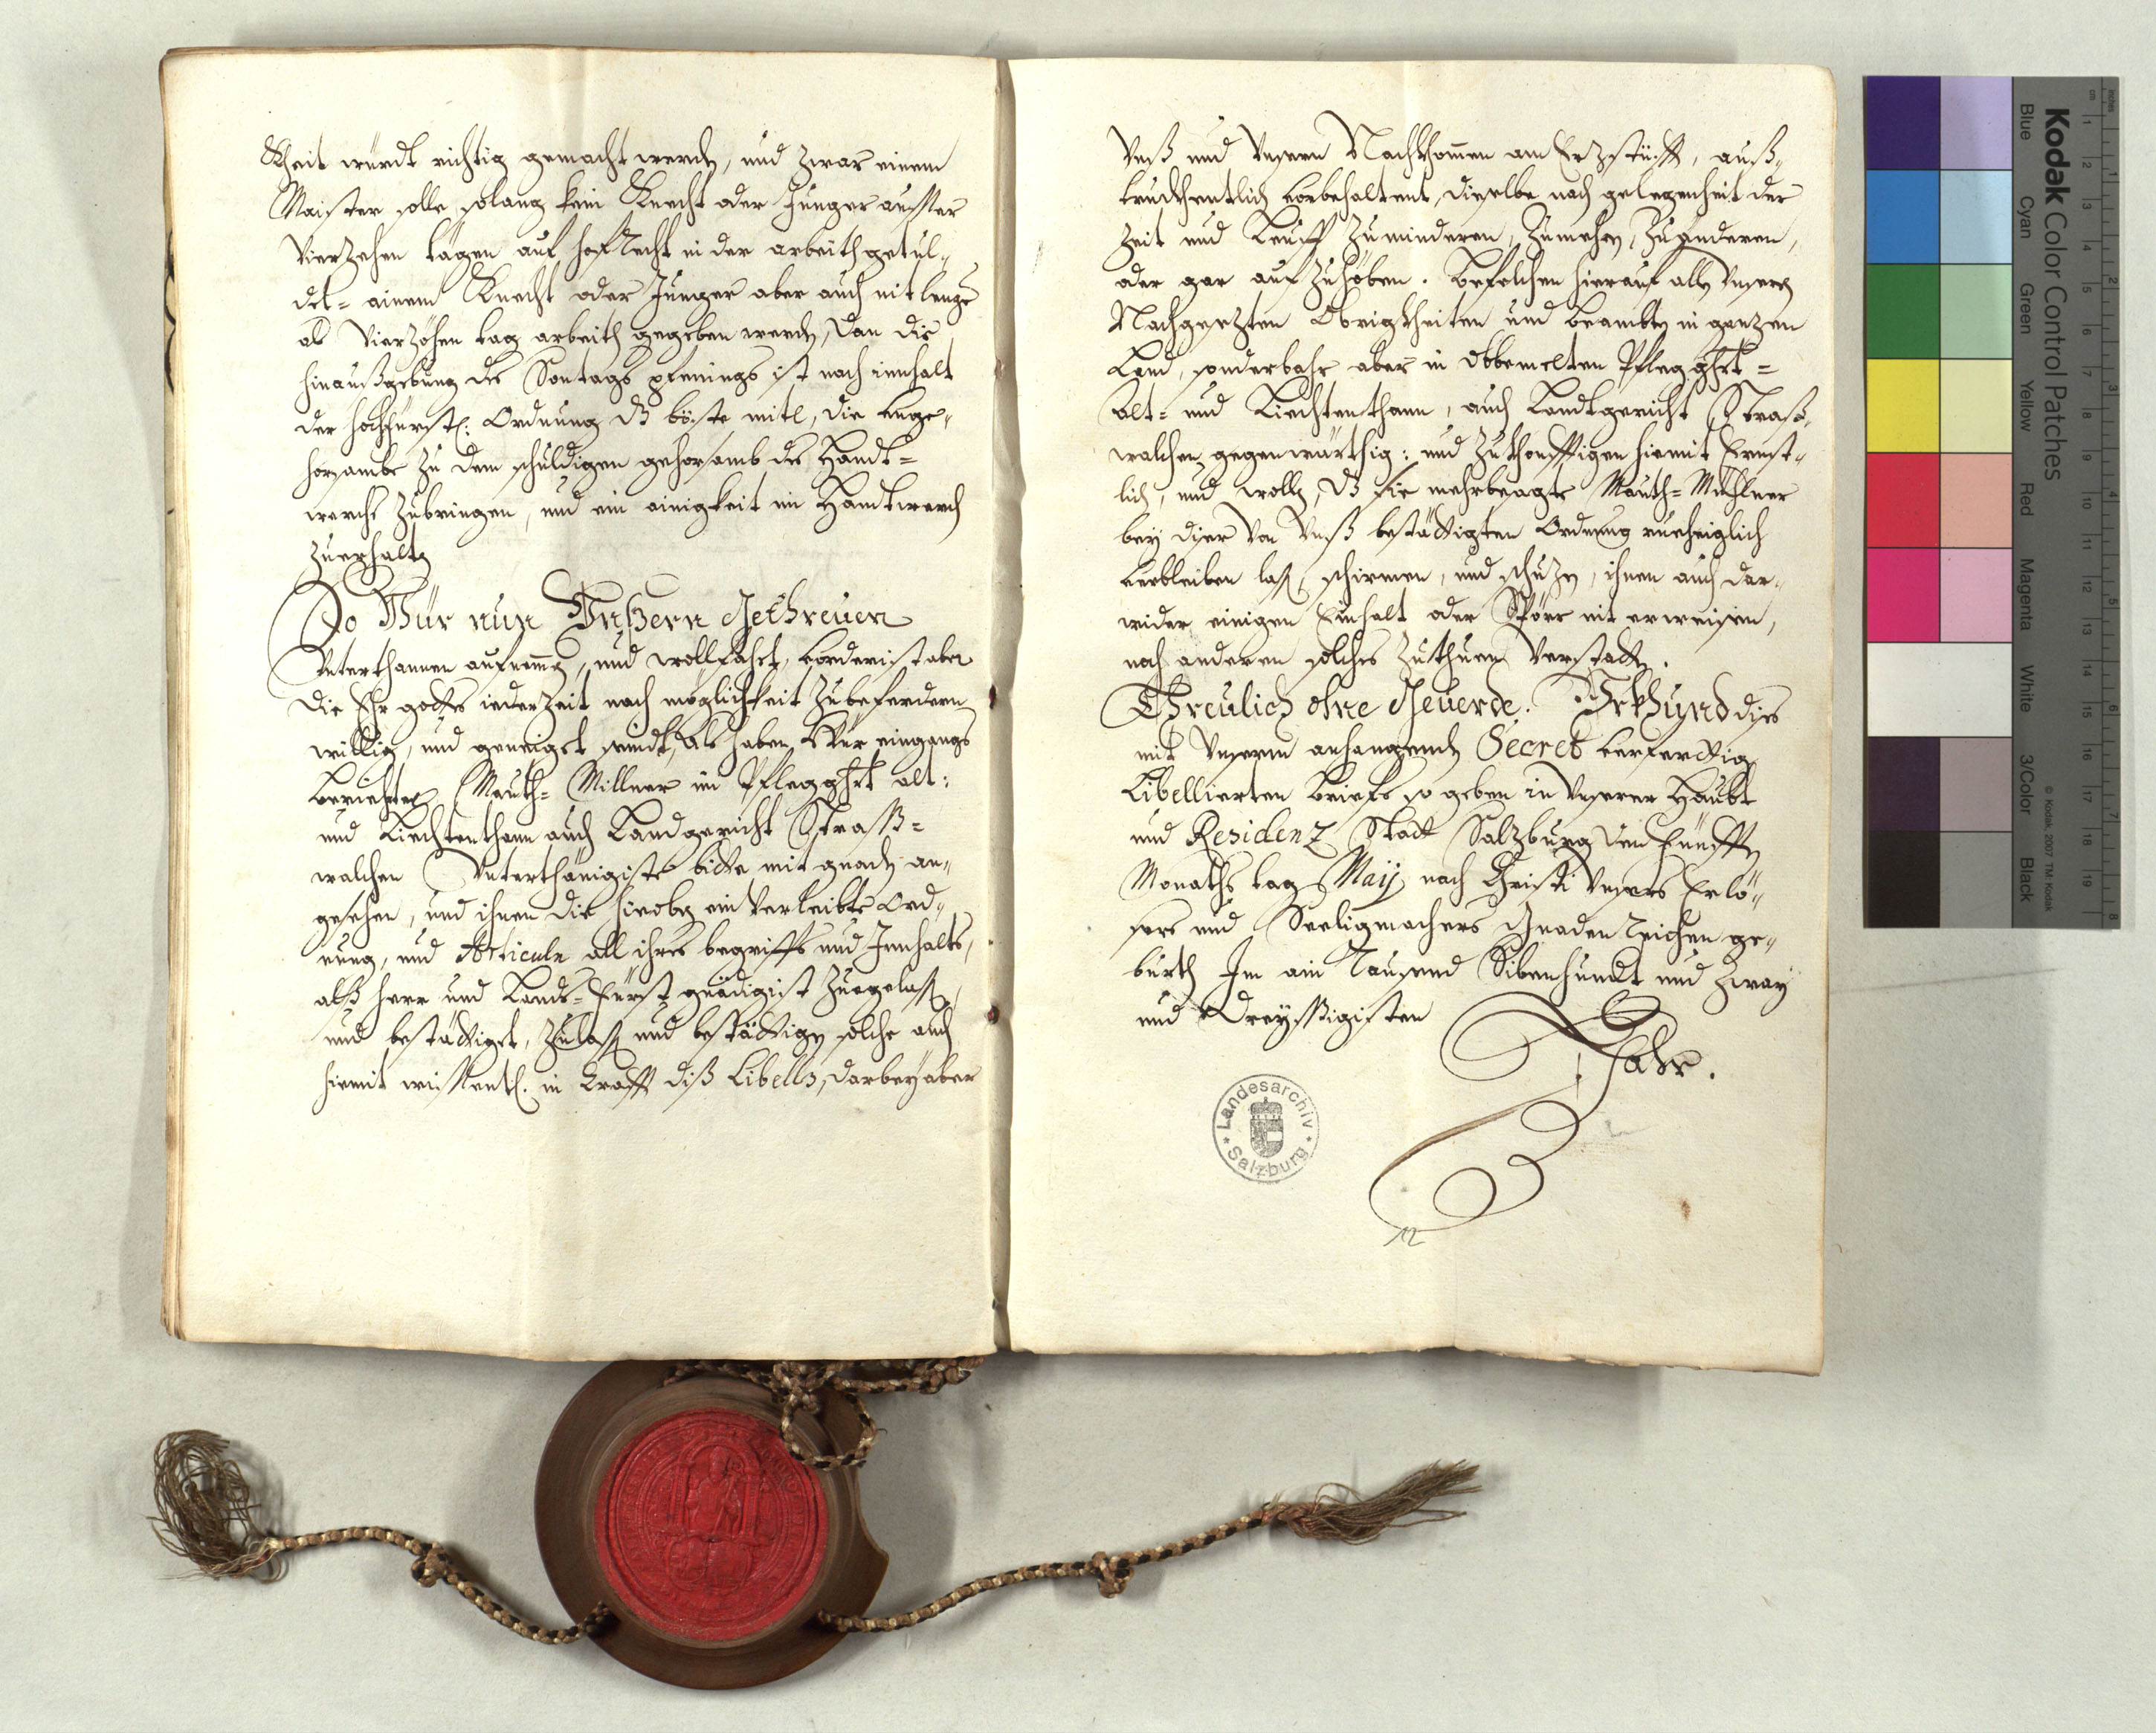 kheit würdt richtig gemacht werden, und zwar einem
Maister solle solang kein Knecht oder Junger ausser
Vierzehen tägen auf hoflrecht in der arbeith getul„
det= ainem Knecht oder Junger aber auch nit lenger
als Vierzöhen tag arbeith gegeben werden, Dan die
hinaußgebung des Sontags pfenings ist nach innhalt
der hochfürstl: Ordnung dz böste mitl, die unge„
horsambe zu dem schuldigen gehorsamb des Handt=
werchs zubringen, und ein ainigkeit im Handtwerch
zuerhalten
So Wür nun Unßern Gethreuen
Unterthannen aufnemmen, und wollfahrt, forderist aber
die Ehr gottes iederzeit nach möglichkeit zubefürdern
willig, und geneigt seindt, Als haben Wür eingangs
Mauth= Millner im Pfleggrht alt:
und Liechtenthann auch Landgericht Straß=
walchen Unterthänigiste bitte mit gnaden an„
gesehen, und ihnen die hieoben ein Verleibte Ord„
nung, und Articuln all ihres begriffs und Innhalts,
alß Herr und Lands=Fürst gnädigist Zuegelassen,
und bestättiget, Zulassen und bestättigen solche auch
hiemit wissentl. in Krafft diß Libells, darbey aber
Unß und Unsern Nachkhommen am Erzstüfft, auß„
trukhentlich vorbehaltent, dieselbe nach gelegenheit der
Zeit und Leuff zumindern, Zumehren, Zuänderen,
oder gar aufzuhöben. Befelchen hierauf allen Unsern
Nachgesezten Obrigkheiten und beambten in ganzen
Land, sonderbahr aber in obbemelten Pfleggrht=
alt= und Liechtenthann, auch Landtgericht Straß„
walchen gegenwürthig: und Zukhonfftigen hiemit Ernst„
lich, und wollen, dz sie mehrbesagte Mauth=Mühlner
bey diser Von Unß bestättigten Ordnung rueheiglich
verbleiben lassen, schirmen, und schuzen, ihnen auch dar„
wider einigen Einhalt oder Spörr nit erweisen,
noch anderen solches Zuthuen Verstatten.
Threulich ohne Geuerde. Urkhund diss
mit Unserm anhangenden Secret verferttig
Libellierten briefs so geben in Unserer Haubt
und Residenz Statt Salzburg den Fünfften
Monaths tag Maij nach Christi Unsers Erlö„
sers und Seeligmachers Gnaden reichen ge„
burth Im ain Tausend Sibenhundt und Zway
und Dreyssigisten
Jahr.
Landesarchiv
Salzburg
12
Kodak Color Control Patches
© Kodak, 2007 TM: Kodak
Blue Cyan Green Yellow Red Magenta White 3/Color Black
cm 1 2 3 4 5 6 7 8 9 10 11 12 13 14 15 16 17 18 19
inches 1 2 3 4 5 6 7 8